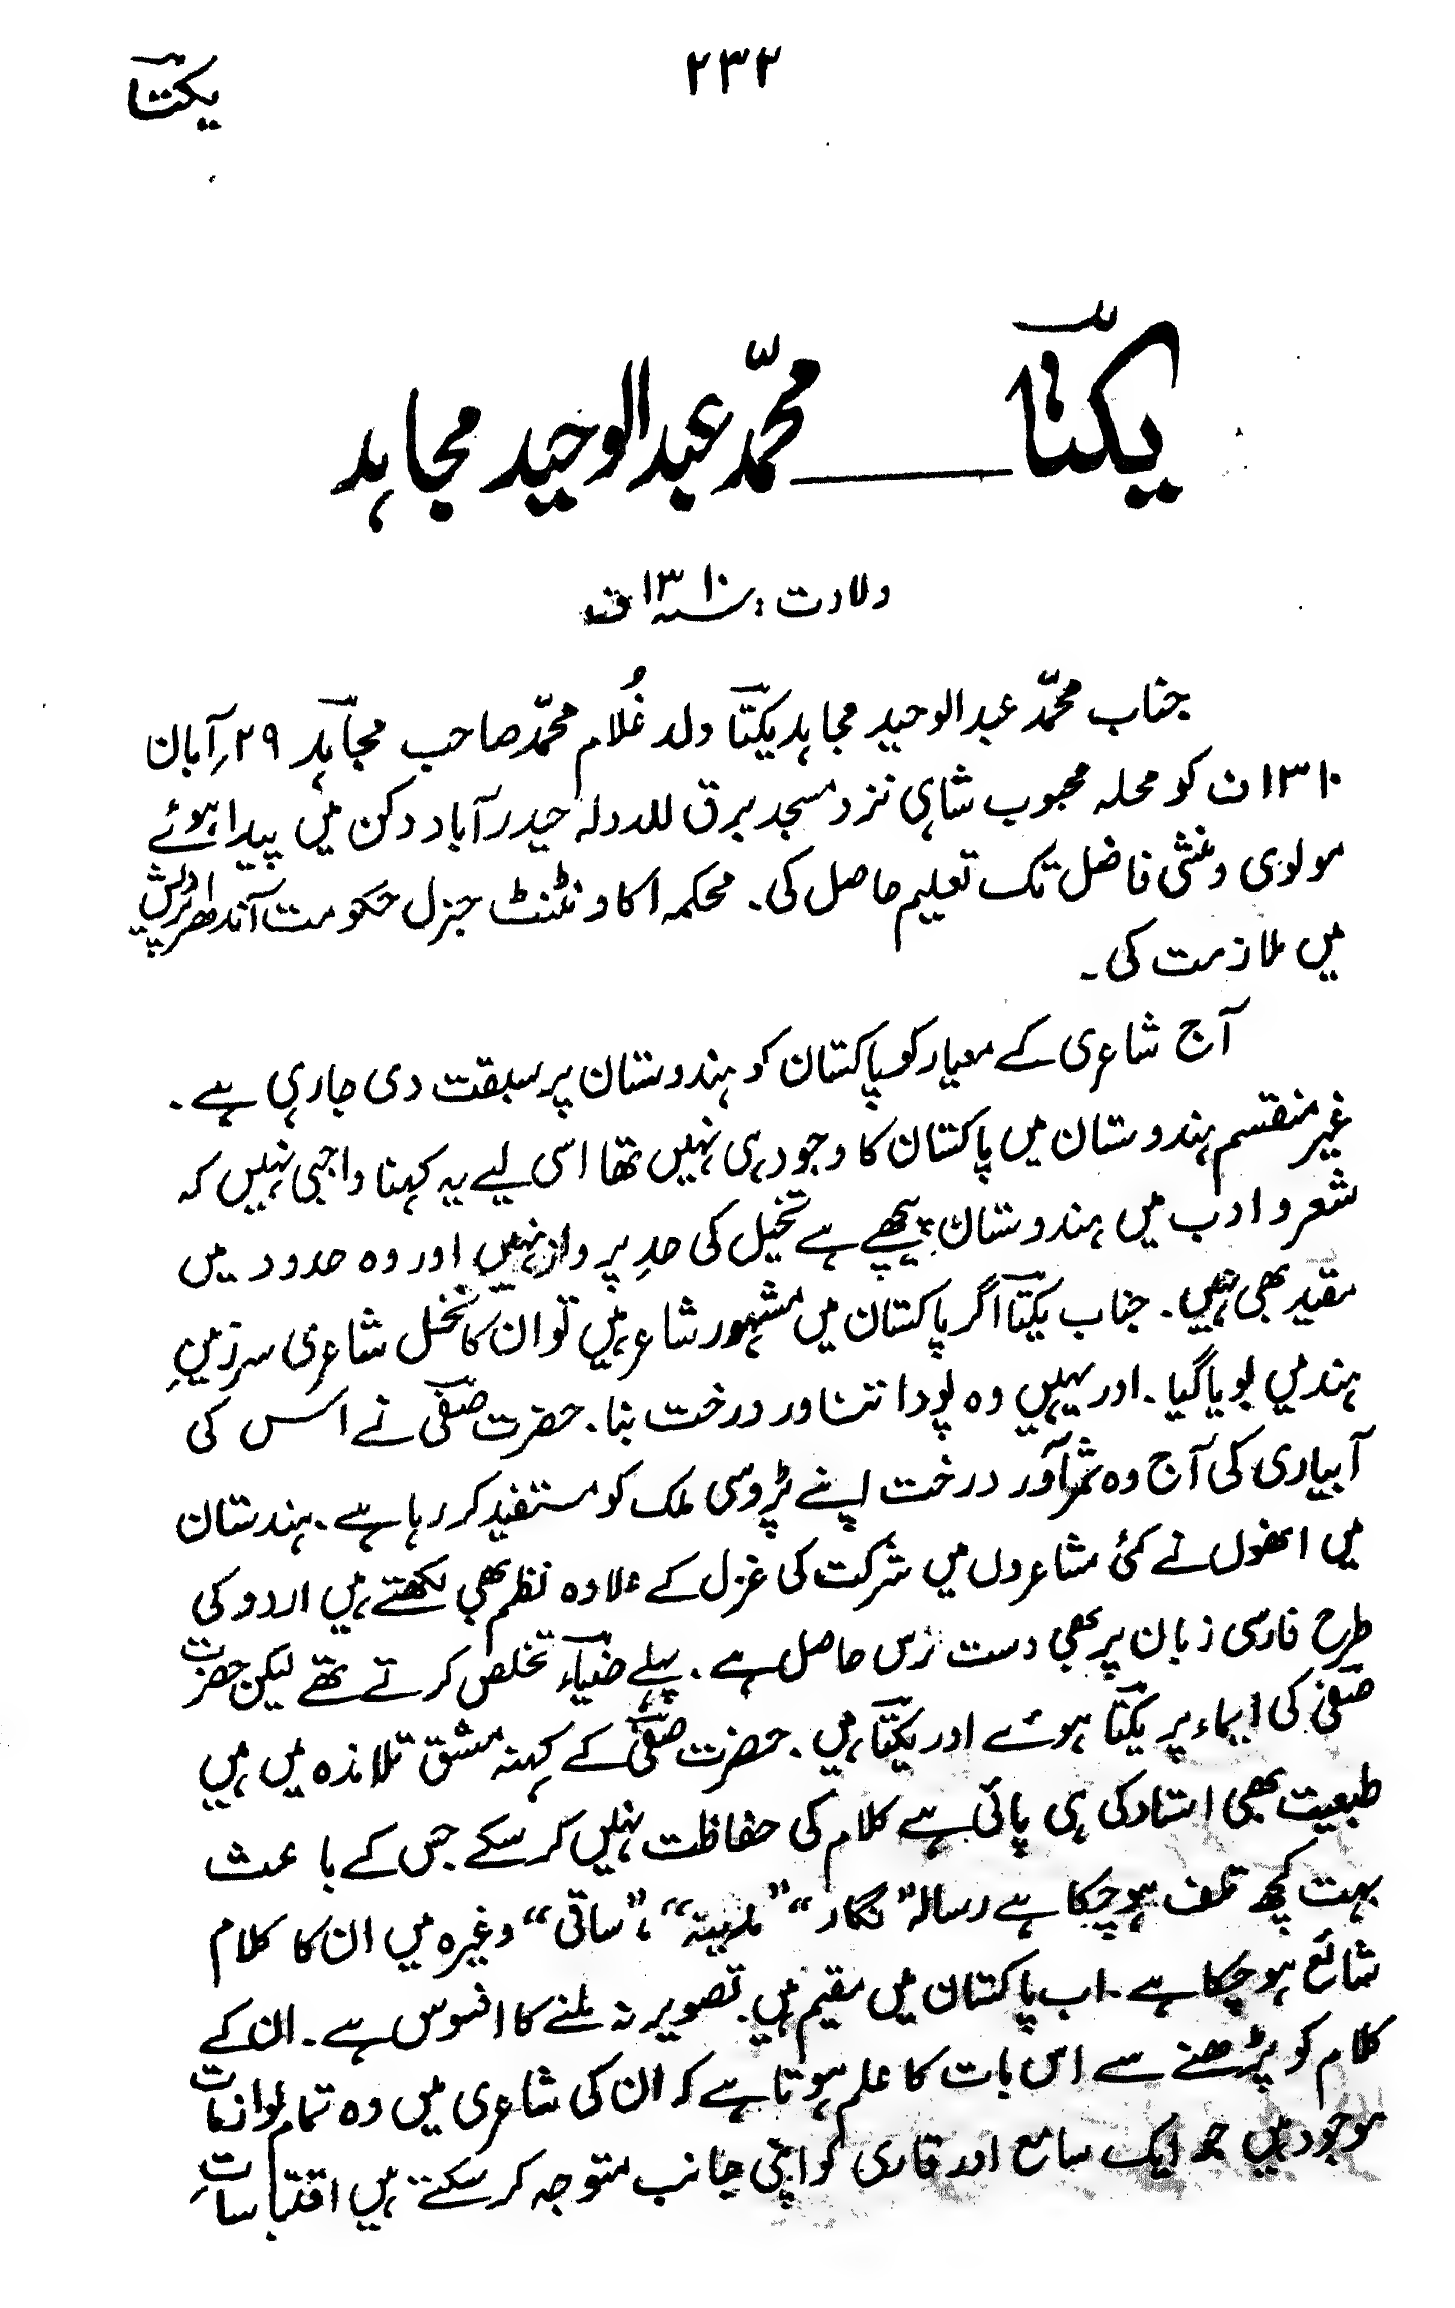 ۲۳۲
یکتاؔ
یکتاؔ ـــــ محمّد عبدالوحید مجاہد
ولادت: سنہ ۱۳۱۰ ف
جناب محمّد عبدالوحید مجاہد یکتاؔ ولد غُلام محمّد صاحب مجاہدؔ ۲۹؍ آبان
۱۳۱۰ ف کو محلہ محبوب شاہی نزد مسجد برق للدولہ حیدرآباد دکن میں پیدا ہوئے
مولوی و منشی فاضل تک تعلیم حاصل کی۔ محکمہ اکاونٹنٹ جنرل حکومت آندھراپردیش
میں ملازمت کی۔
آج شاعری کے معیار کو پاکستان کو ہندوستان پر سبقت دی جارہی ہے۔
غیر منقسم ہندوستان میں پاکستان کا وجود ہی نہیں تھا اسی لیے یہ کہنا واجبی نہیں کہ
شعر و ادب میں ہندوستان پیچھے ہے تخیل کی حدِ پرواز نہیں اور وہ حدود میں
مقید بھی نہیں۔ جناب یکتاؔ اگر پاکستان میں مشہور شاعر ہیں تو ان کا نخل شاعری سرزمینِ
ہند میں بویا گیا۔ اور یہیں وہ پودا تناور درخت بنا۔ حضرت صفیؔ نے اس کی
آبیاری کی آج وہ ثمر آور درخت اپنے پڑوسی ملک کو مستفید کر رہا ہے۔ ہندستان
میں انھوں نے کئی مشاعروں میں شرکت کی غزل کے علاوہ نظم بھی لکھتے ہیں اردو کی
طرح فارسی زبان پر بھی دست رس حاصل ہے۔ پہلے ضیاؔء تخلص کرتے تھے لیکن حضرت
صفیؔ کی ایماء پر یکتاؔ ہوئے اور یکتاؔ ہیں۔ حضرت صفیؔ کے کہنہ مشق تلامذہ میں ہیں
طبیعت بھی استاد کی ہی پائی ہے کلام کی حفاظت نہیں کرسکے جس کے باعث
بہت کچھ تلف ہوچکا ہے رسالہ "نگار" "مدینہ"، "ساقی" وغیرہ میں ان کا کلام
شائع ہوچکا ہے۔ اب پاکستان میں مقیم ہیں۔ تصویر نہ ملنے کا افسوس ہے۔ ان کے
کلام کو پڑھنے سے اس بات کا علم ہوتا ہے کہ ان کی شاعری میں وہ تمام لوازمات
موجود ہیں جو ایک سامع اور قاری کو اپنی جانب متوجہ کرسکتے ہیں اقتباساتِ